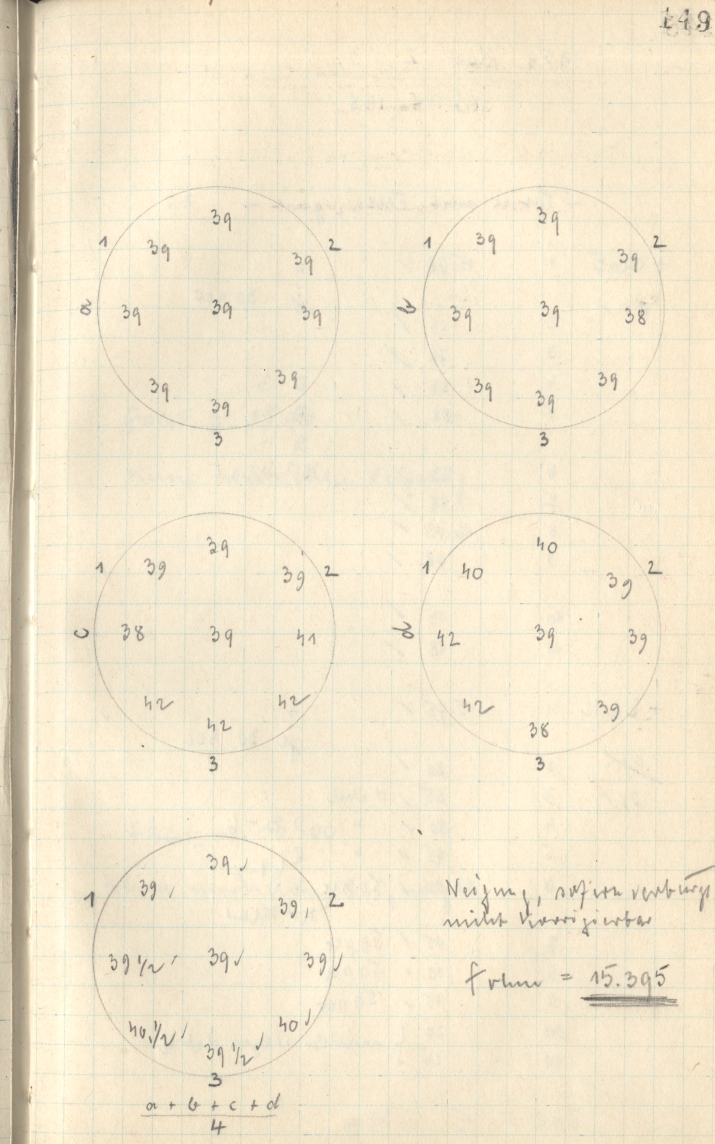 149
39
39
1 39 2
39
39 1 2
a 39 39 39
b 39 39 38
39 39
39 39 39
39
3
39
3
39
40
1 39 39 2
1 40 39 2
c 38 39 41
d 42 39 39
42 42
42 39
42
38
3
3
39
1 39 39 2
39 1/2 39 39
40 1/2 40
39 1/2
3
a + b + c + d
4
Neigung, sofern verbürgt
nicht korrigierbar
f ohm = 15.395